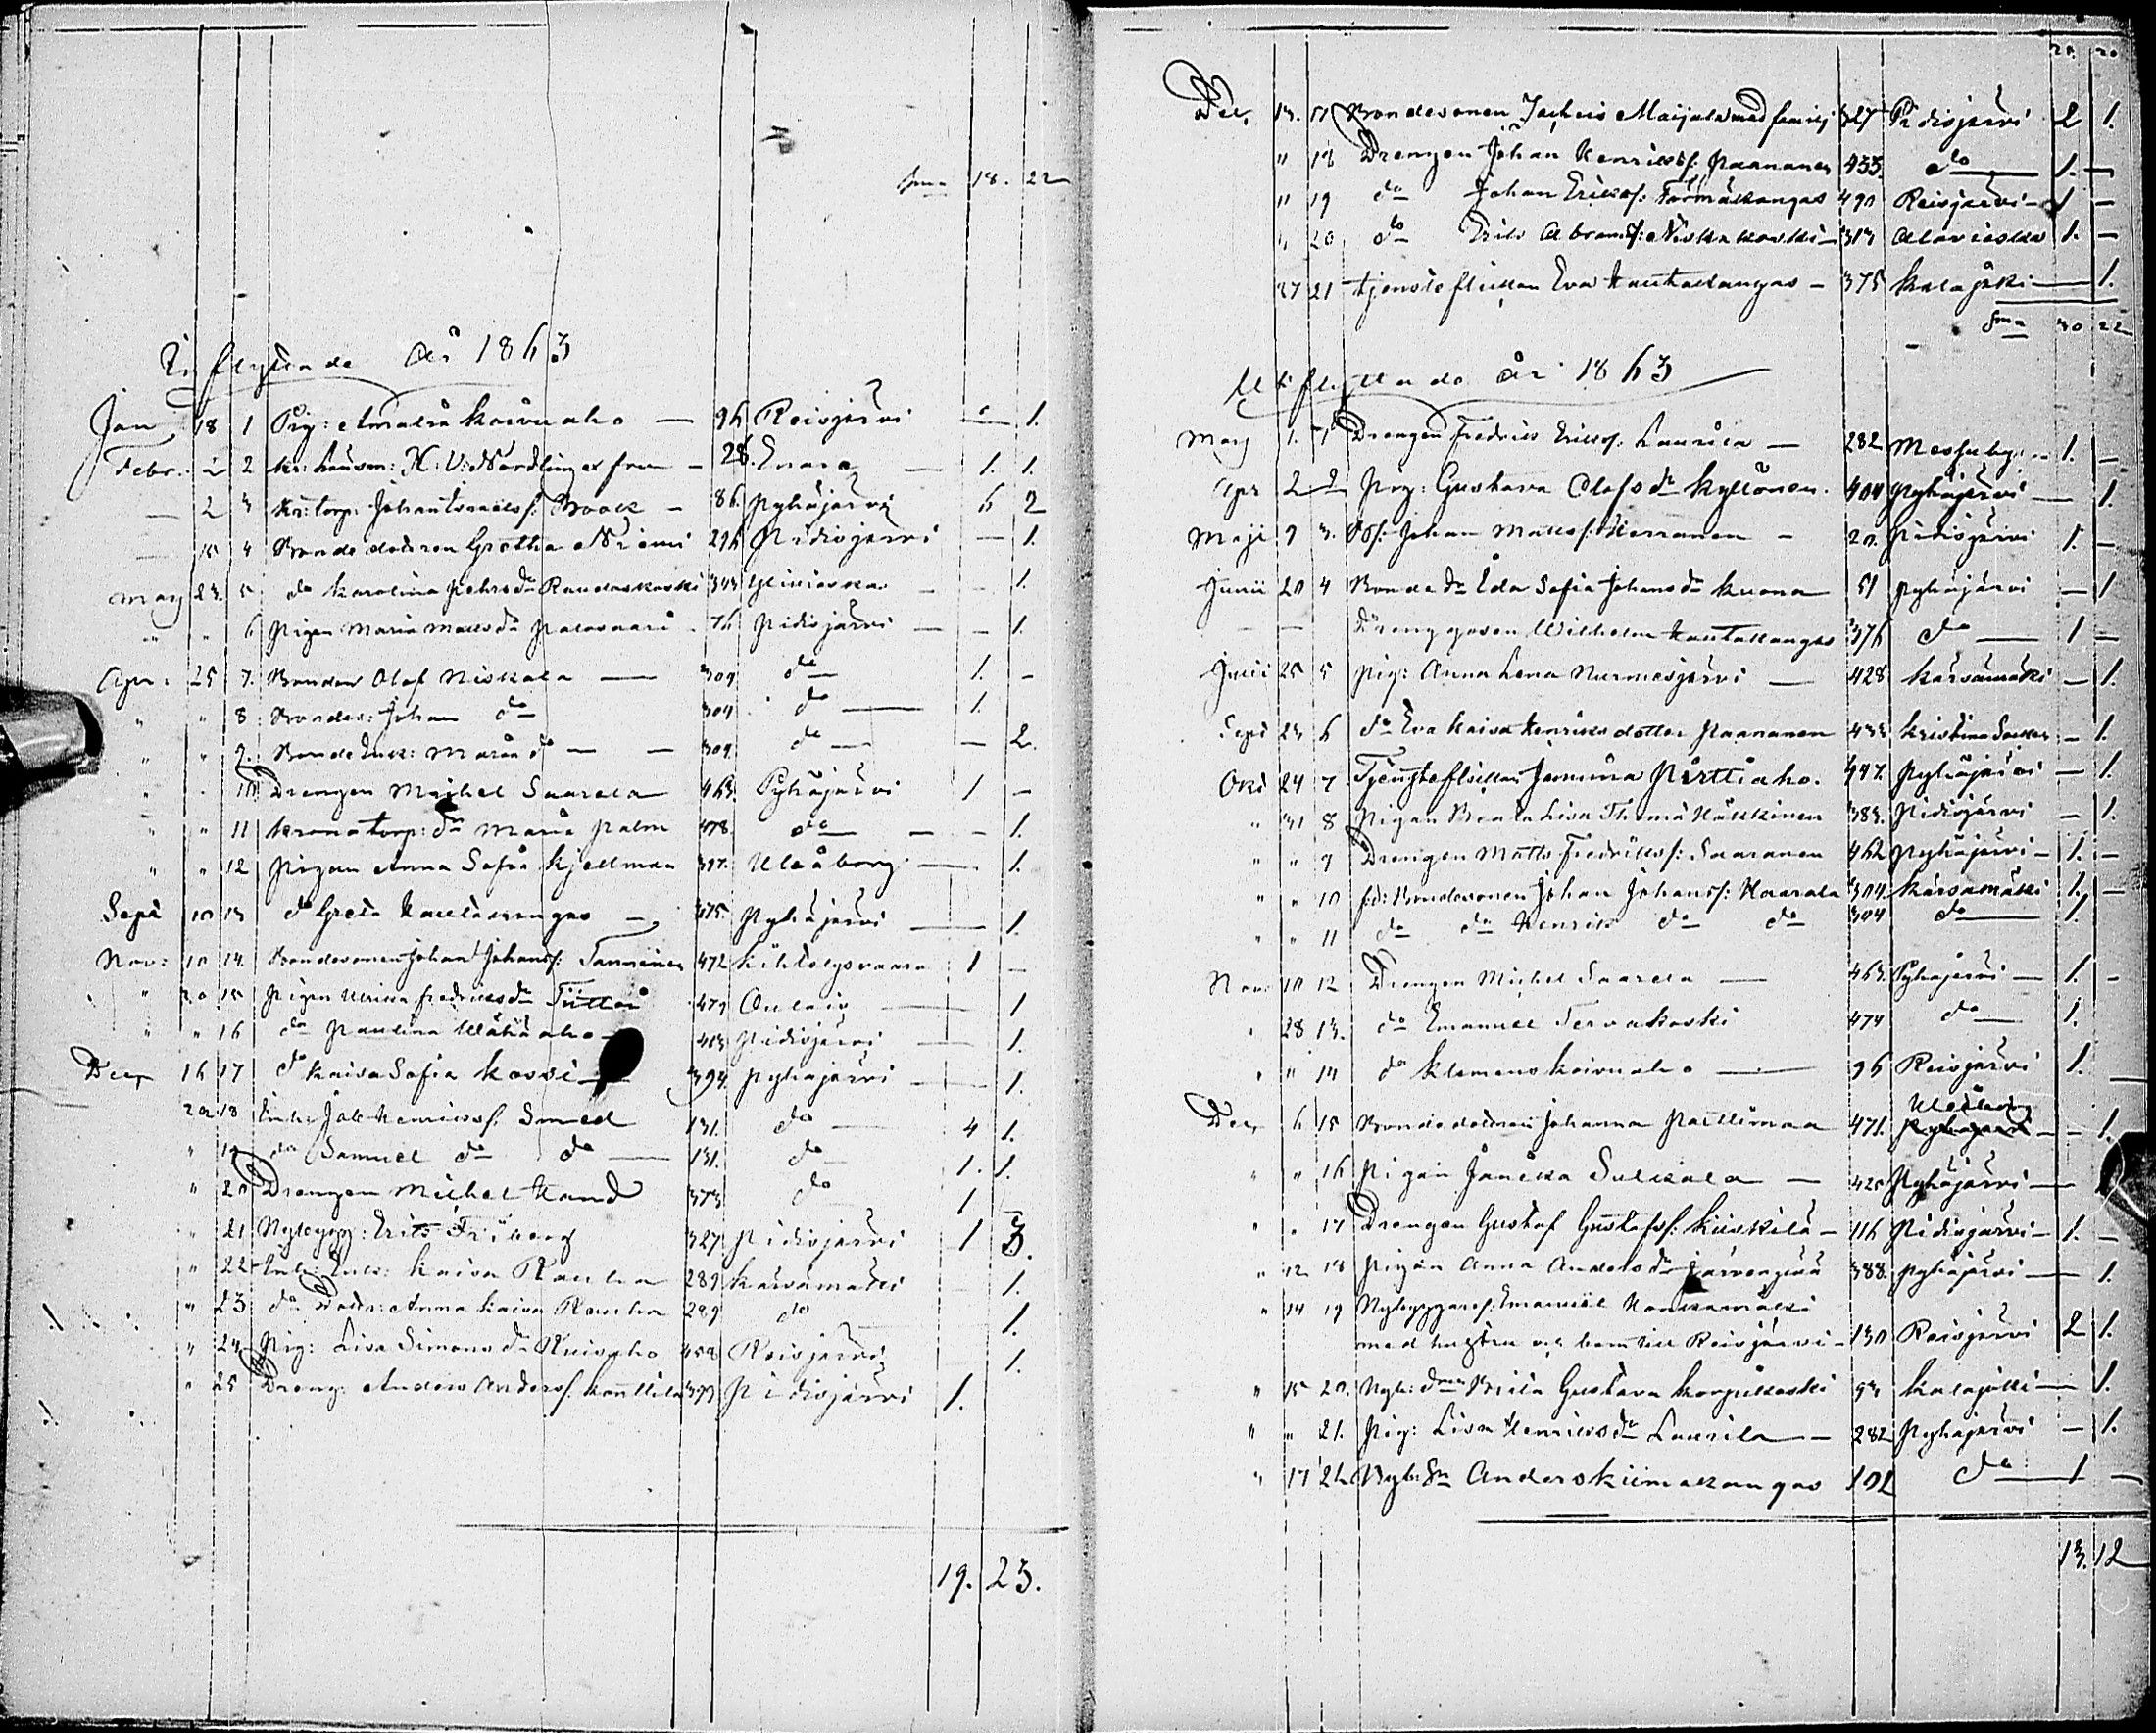 Sma 18. 22
Inflyttande År 1863
Jan 18 1 Pig: Amalia Koivuaho — 96 Reisjärvi — 1.
Febr. 2 2 Kr: Länsm: K: V: Nordling o: fru — 28. Enare — 1. 1.
— 2 3 Kr: torp: Johan Israelss: Brock — 86. Pyhäjärvi 6 2
— 15 4 Bonde dottren Gretha Niemi 296 Pidisjärvi — 1.
Marj 23. 5 do Karolina Pehrsdr Raudaskoski 343 Ylivieska — 1.
" " 6 Pigan Maria Mattsdr Palovaari 76 Pidisjärvi — 1.
Apr: 25 7. Bonden Olof Niskala — 309 do 1. —
" " 8 Bondes: Johan do 309 do — 1.
" " 9. Bonde Enk: Maria do — 309. do — 2.
" " 10 Drengen Michel Saarela 463. Pyhäjärvi 1 —
" " 11 Kronotorp: dr Maria Palm 478. do — 1.
" " 12 Pigan Anna Sofia Kjellman 397. Uleåborg — 1.
Sept 10 13 do Greta Kautakangas — 375. Pyhäjärvi — 1.
Nov: 10 14. Bondesonen Johan Johanss: Tanninen 472 Kihtelysvaara 1 —
" 20 15 Pigan Ulrika Fredriksdr Tiitto 479 Oulais — 1
" " 16 do Paulina Wähäaho 403 Pidisjärvi — 1.
Decr 16 17 do Kaisa Sofia Kossi 394. Pyhäjärvi — 1.
20 18 Inh: Jak Henrikss: Smed 131. do 4 1.
" 19 do Samuel do do — 131. do 1. 1.
" 20 Drengen Michel Hand 373 do 1
" 21 Nybygg: Erik Friberg 327 Pidisjärvi 1 3.
" 22 Inh: Enk: Kaisa Rauha 289 Kärsämäki 1.
" 23 do Dottr: Anna Kaisa Rauha 289 do 1.
" 24 Pig: Lisa Simonsdr Ruisaho 458 Reisjärvi 1.
" 25 Dreng: Anders Anderss: Konttila 379 Pidisjärvi 1.
19. 23.
Dec, 13. 17 Bondesonen Zachris Maijala med familj 327 Pidisjärvi 2 1.
" 18 Drengen Johan Henrikss: Paananen 433. do — 1. —
" 19 do Johan Erikss: Törmäkangas 490 Reisjärvi — 1 —
" 20 do Erik Abramss: Niskakoski — 313 Alavieska 1. —
27 21 tjensteflickan Eva Kautakangas — 375 Kalajoki — 1.
Sma 30 22
Utflyttande år 1863
Marj 1. 1 Drengen Fredrik Erikss: Laurila — 282 Messuby — 1. —
Apr 2 2 Pig: Gustava Olofsdr Kyllönen. 404 Pyhäjärvi — 1.
Maji 9 3. Ss: Johan Matts: Herranen — 20. Pidisjärvi 1. —
Junii 20 4 Bonde dr Eda Sofia Johansdr Kuona 51 Pyhäjärvi — 1
— — Drenggosen Wilhelm Kautakangas 376 do — 1 —
Junii 25 5 Pig: Anna Lena Nurmesjärvi — 428 Kärsämäki — 1.
Sept 23 6 do Eva Kaisa Henriksdotter Paananen 433 Kristina — 1.
Okt 24 7. Tjensteflickan Jemina Pirttiaho. 447. Pyhäjärvi — 1.
" 31 8 Pigan Beata Lisa Thoma Häkkinen 383. Pidisjärvi — 1.
" " 9 Drengen Matts Fredrikss: Saaranen 462 Pyhäjärvi — 1. —
" " 10 fd: Bondesonen Johan Johanss: Haarala 304. Kärsämäki 1. —
" " 11 do do Henrik do do 304 do — 1.
Nov: 10 12 Drengen Michel Saarela — 463. Pyhäjärvi — 1. —
" 28 13. do Emanuel Tervakoski 474 do — 1.
" " 14 do Klemens Koivuaho — 96 Reisjärvi 1.
Uleåborg
Decr 6 15 Bondedottren Johanna Paellimaa 471. Pyhäjärvi — 1.
" " 16 Pigan Janika Sulkala — 420 Pyhäjärvi —
" " 17 Drengen Gustaf Gustafss: Kiiskilä — 116 Pidisjärvi — 1. —
" 12 18 Pigan Anna Andersdr Järvenpää 388. Pyhäjärvi — 1.
" 14 19 Nybyggares: Emanuel Honkamäki
med hustru och barn till Reisjärvi — 130 Reisjärvi 2 1.
" 15 20. Nyb: dottr Briita Gustava Korpikoski 93 Kalajoki — 1.
" " 21. Pig: Lisa Henriksdr Laurila — 282 Pyhäjärvi — 1.
" 17 22 Nyb: Sn Anders Kiimakangas 101 do — 1 —
13. 12